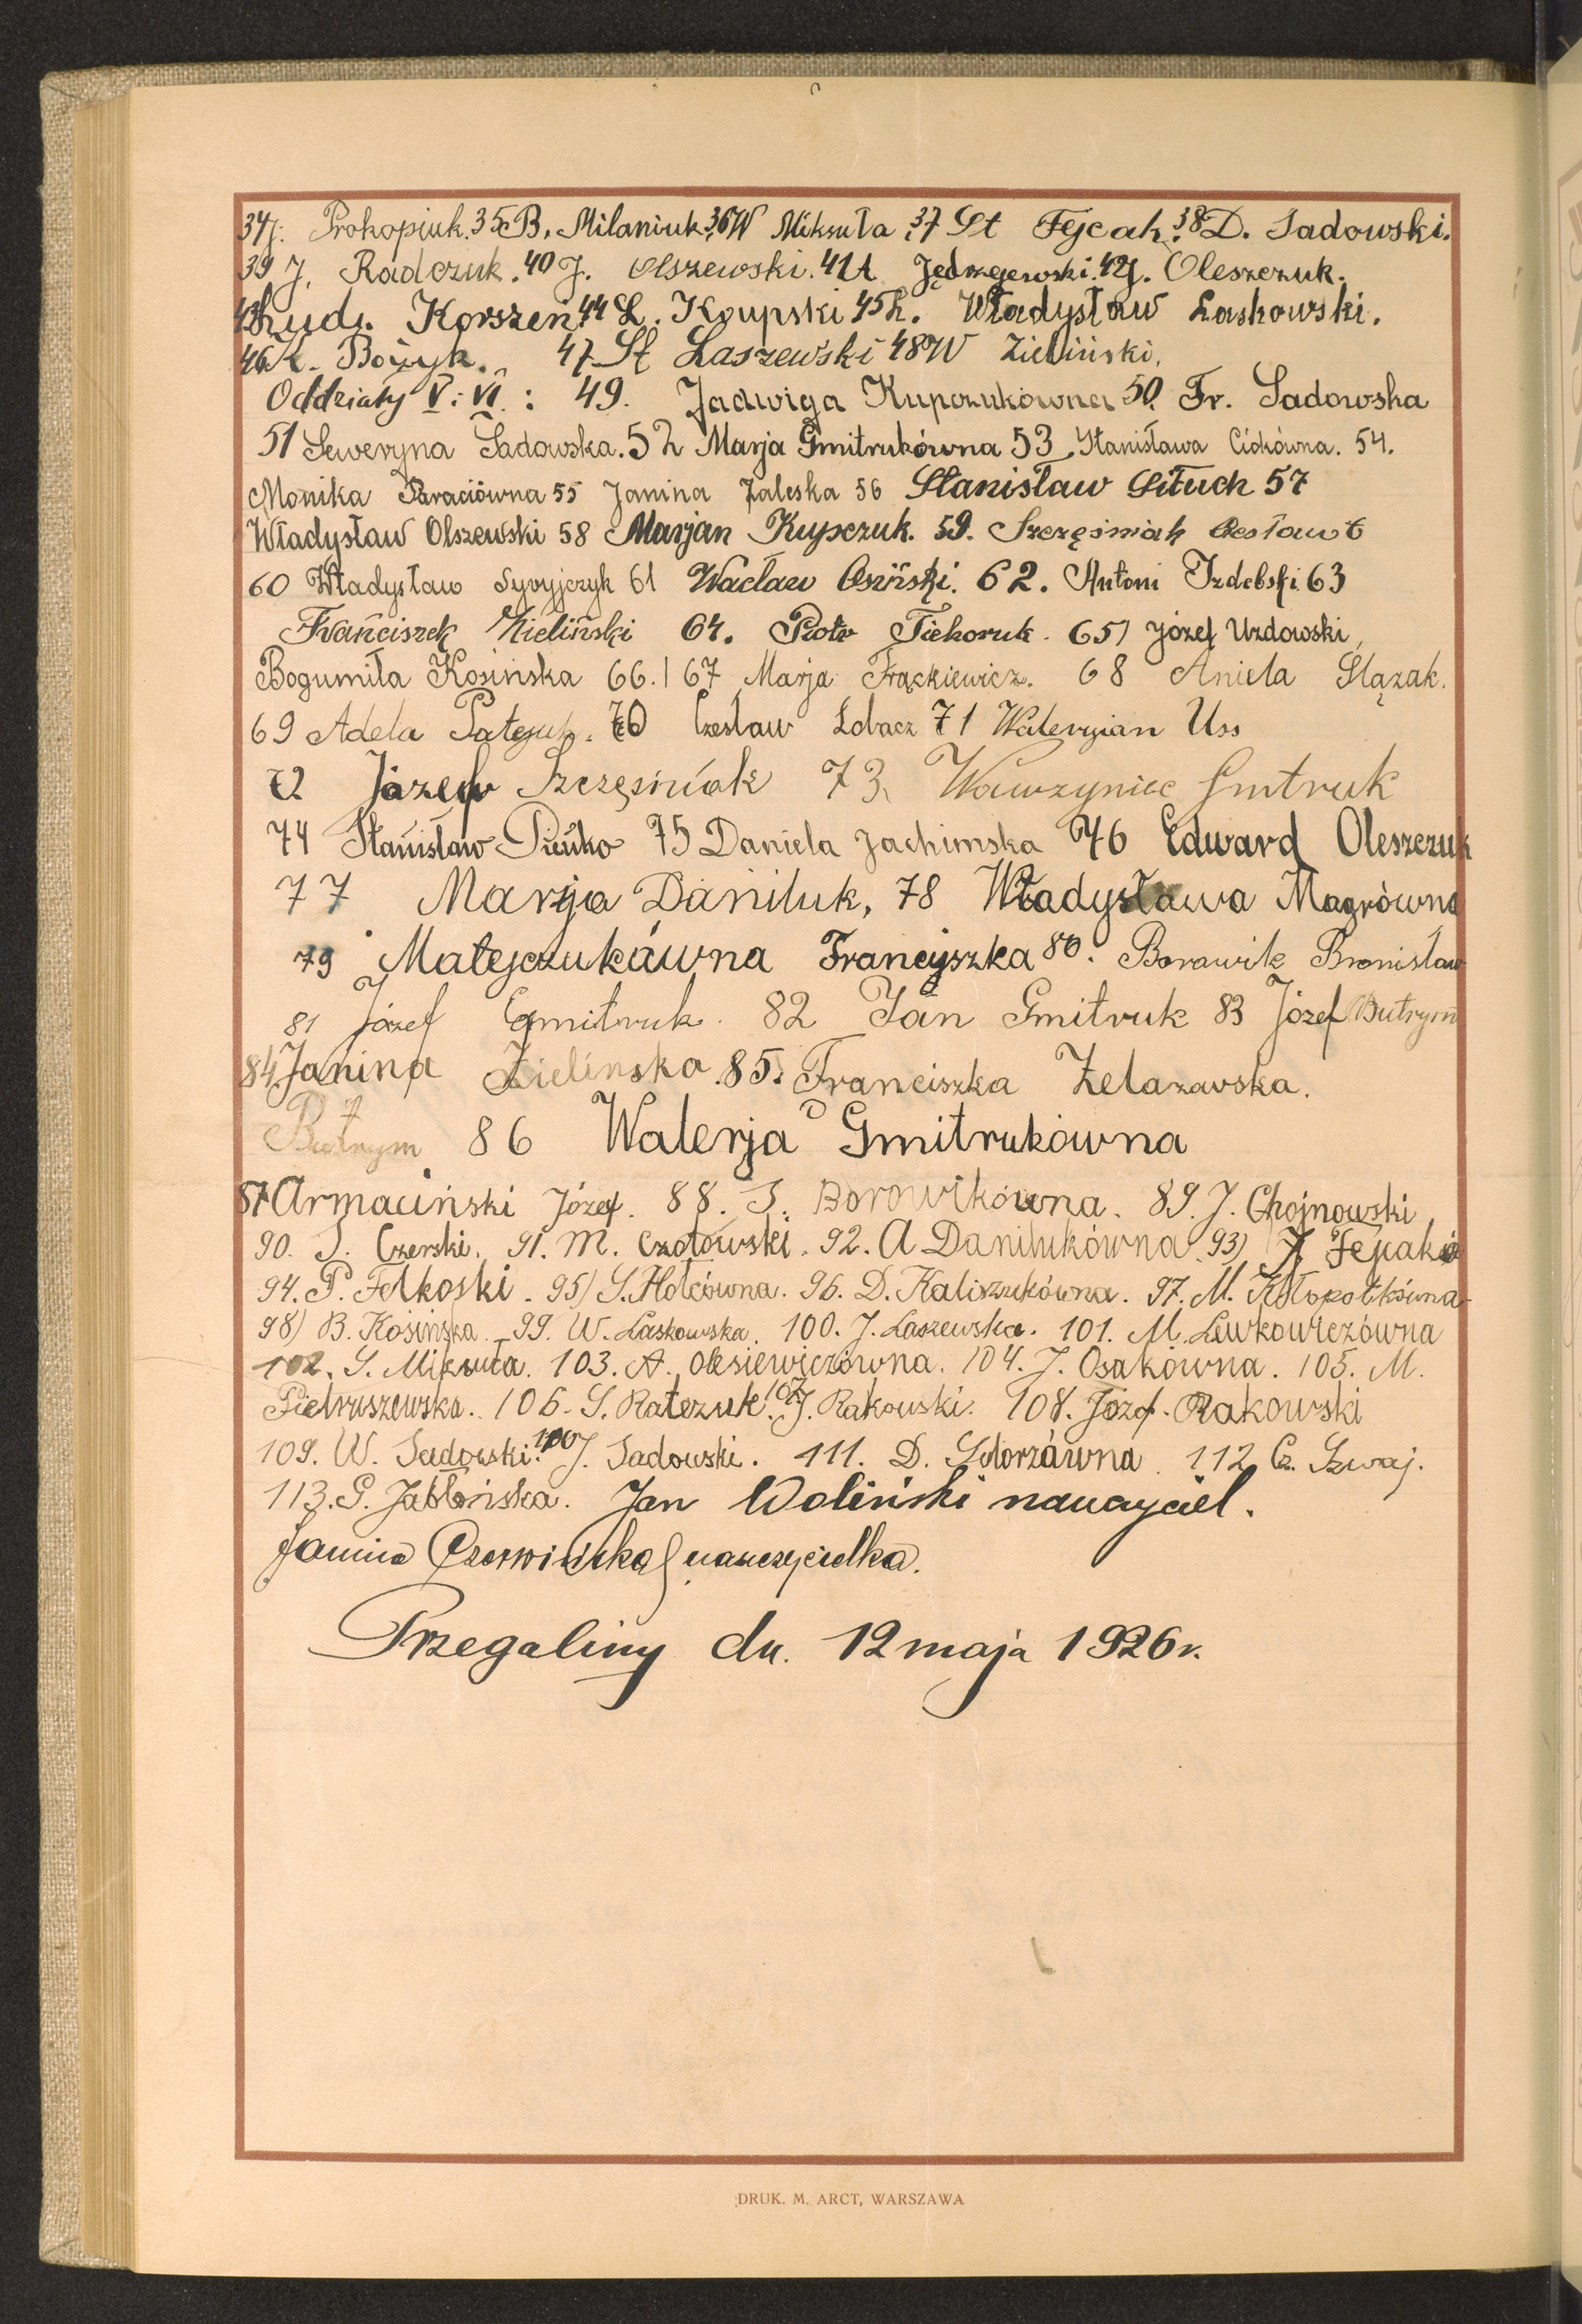 34 J. Prokopiuk. 35 B. Milaniuk. 36 W Miksuta. 37 St Fejcak. 38 D. Sadowski.
39 J. Radczuk. 40 J. Olszewski. 41 A Jędrzejewski. 42 J. Oleszczuk.
43 Ludz. Korszeń 44 L. Koupski 45 L. Władysław Laskowski.
46 K. Bożyk. 47 St Laszewski 48 W Zieliński.
Oddziały V i VI : 49. Jadwiga Kupczukówna 50. Fr. Sadowska
51 Seweryna Sadowska. 52 Marja Gmitrukówna 53. Stanisława Cickówna. 54.
Monika Paraciówna 55 Janina Zaleska 56 Stanisław Situch 57
Władysław Olszewski 58 Marjan Kupczuk. 59. Szczęśniak Czesław
60 Władysław 61 Wacław Osiński. 62. Antoni Izdebski 63
Franciszek Zieliński 64. Piotr Tichoruk. 65) Józef Uzdowski,
Bogumiła Kosińska 66. | 67 Marja Frąckiewicz. 68 Aniela Ślązak.
69 Adela Patejuk. 70 Czesław Łobacz 71 Waleryjan Uss
72 Józef Szczęśniak 73. Wawrzyniec Gmtruk
74 Stanisław Pieńko 75 Daniela Jachimska 76 Edward Oleszczuk
77 Marija Daniluk, 78 Władysława Magrówna
79 Matejczukówna Francyszka 80. Borawik Bronisław
81 Józef Gmitruk. 82 Jan Gmitruk 83 Józef Butrym
84 Janina Zielinska. 85. Franciszka Żelazowska.
Butrym 86 Walerja Gmitrukówna
87 Armaciński Józef. 88. S. Borowikówna. 89. J. Chojnowski,
90. S. Czerski. 91. M. Czołowski. 92. A Danilukówna 93) J Fejcak
94. P. Felkoski. 95) S. Holcówna. 96. D. Kaliszukówna. 97. M. Kłopotkówna
98) B. Kosińska. 99. W. Laskowska. 100. J. Laszewska. 101. M. Lewkowiczówna
102. S. Miksuta. 103. A. Olesiewiczówna. 104. J. Osakówna. 105. M.
Pietruszewska. 106. S. Ratczuk. 107 J. Rakowski. 108. Józef. Rakowski
109. W. Sadowski. 110 J. Sadowski. 111. D. Sidorzáwna. 112 Cz. Szwaj.
113. G. Jabłońska. Jan Woliński nauczyciel.
Janina Czerwińska nauczycielka.
Przegaliny dn. 12 maja 1926 r.
DRUK. M. ARCT, WARSZAWA